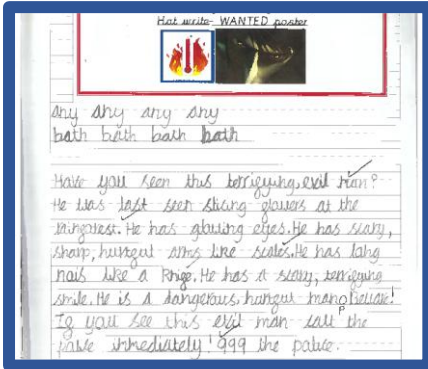 Hot write- WANTED poster
any any any any
bath bath bath bath
Have you seen this terrifying, evil man?
He was last seen stiang glowers at the
raingorest. He has glowing eyes. He has scary,
sharp, hurtgul arms like scales. He has long
nails like a Knige. He has a scary, terrigying
smile. He is a dangerous, hurtgul man
Ig you see this evil man call the
police immediately! 999 the police.